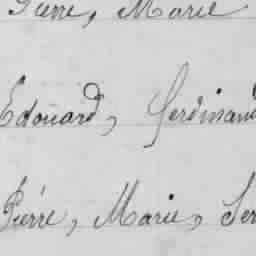 Pierre, Marie
Edouard, Ferdinand
Piérre, Marie, Ser